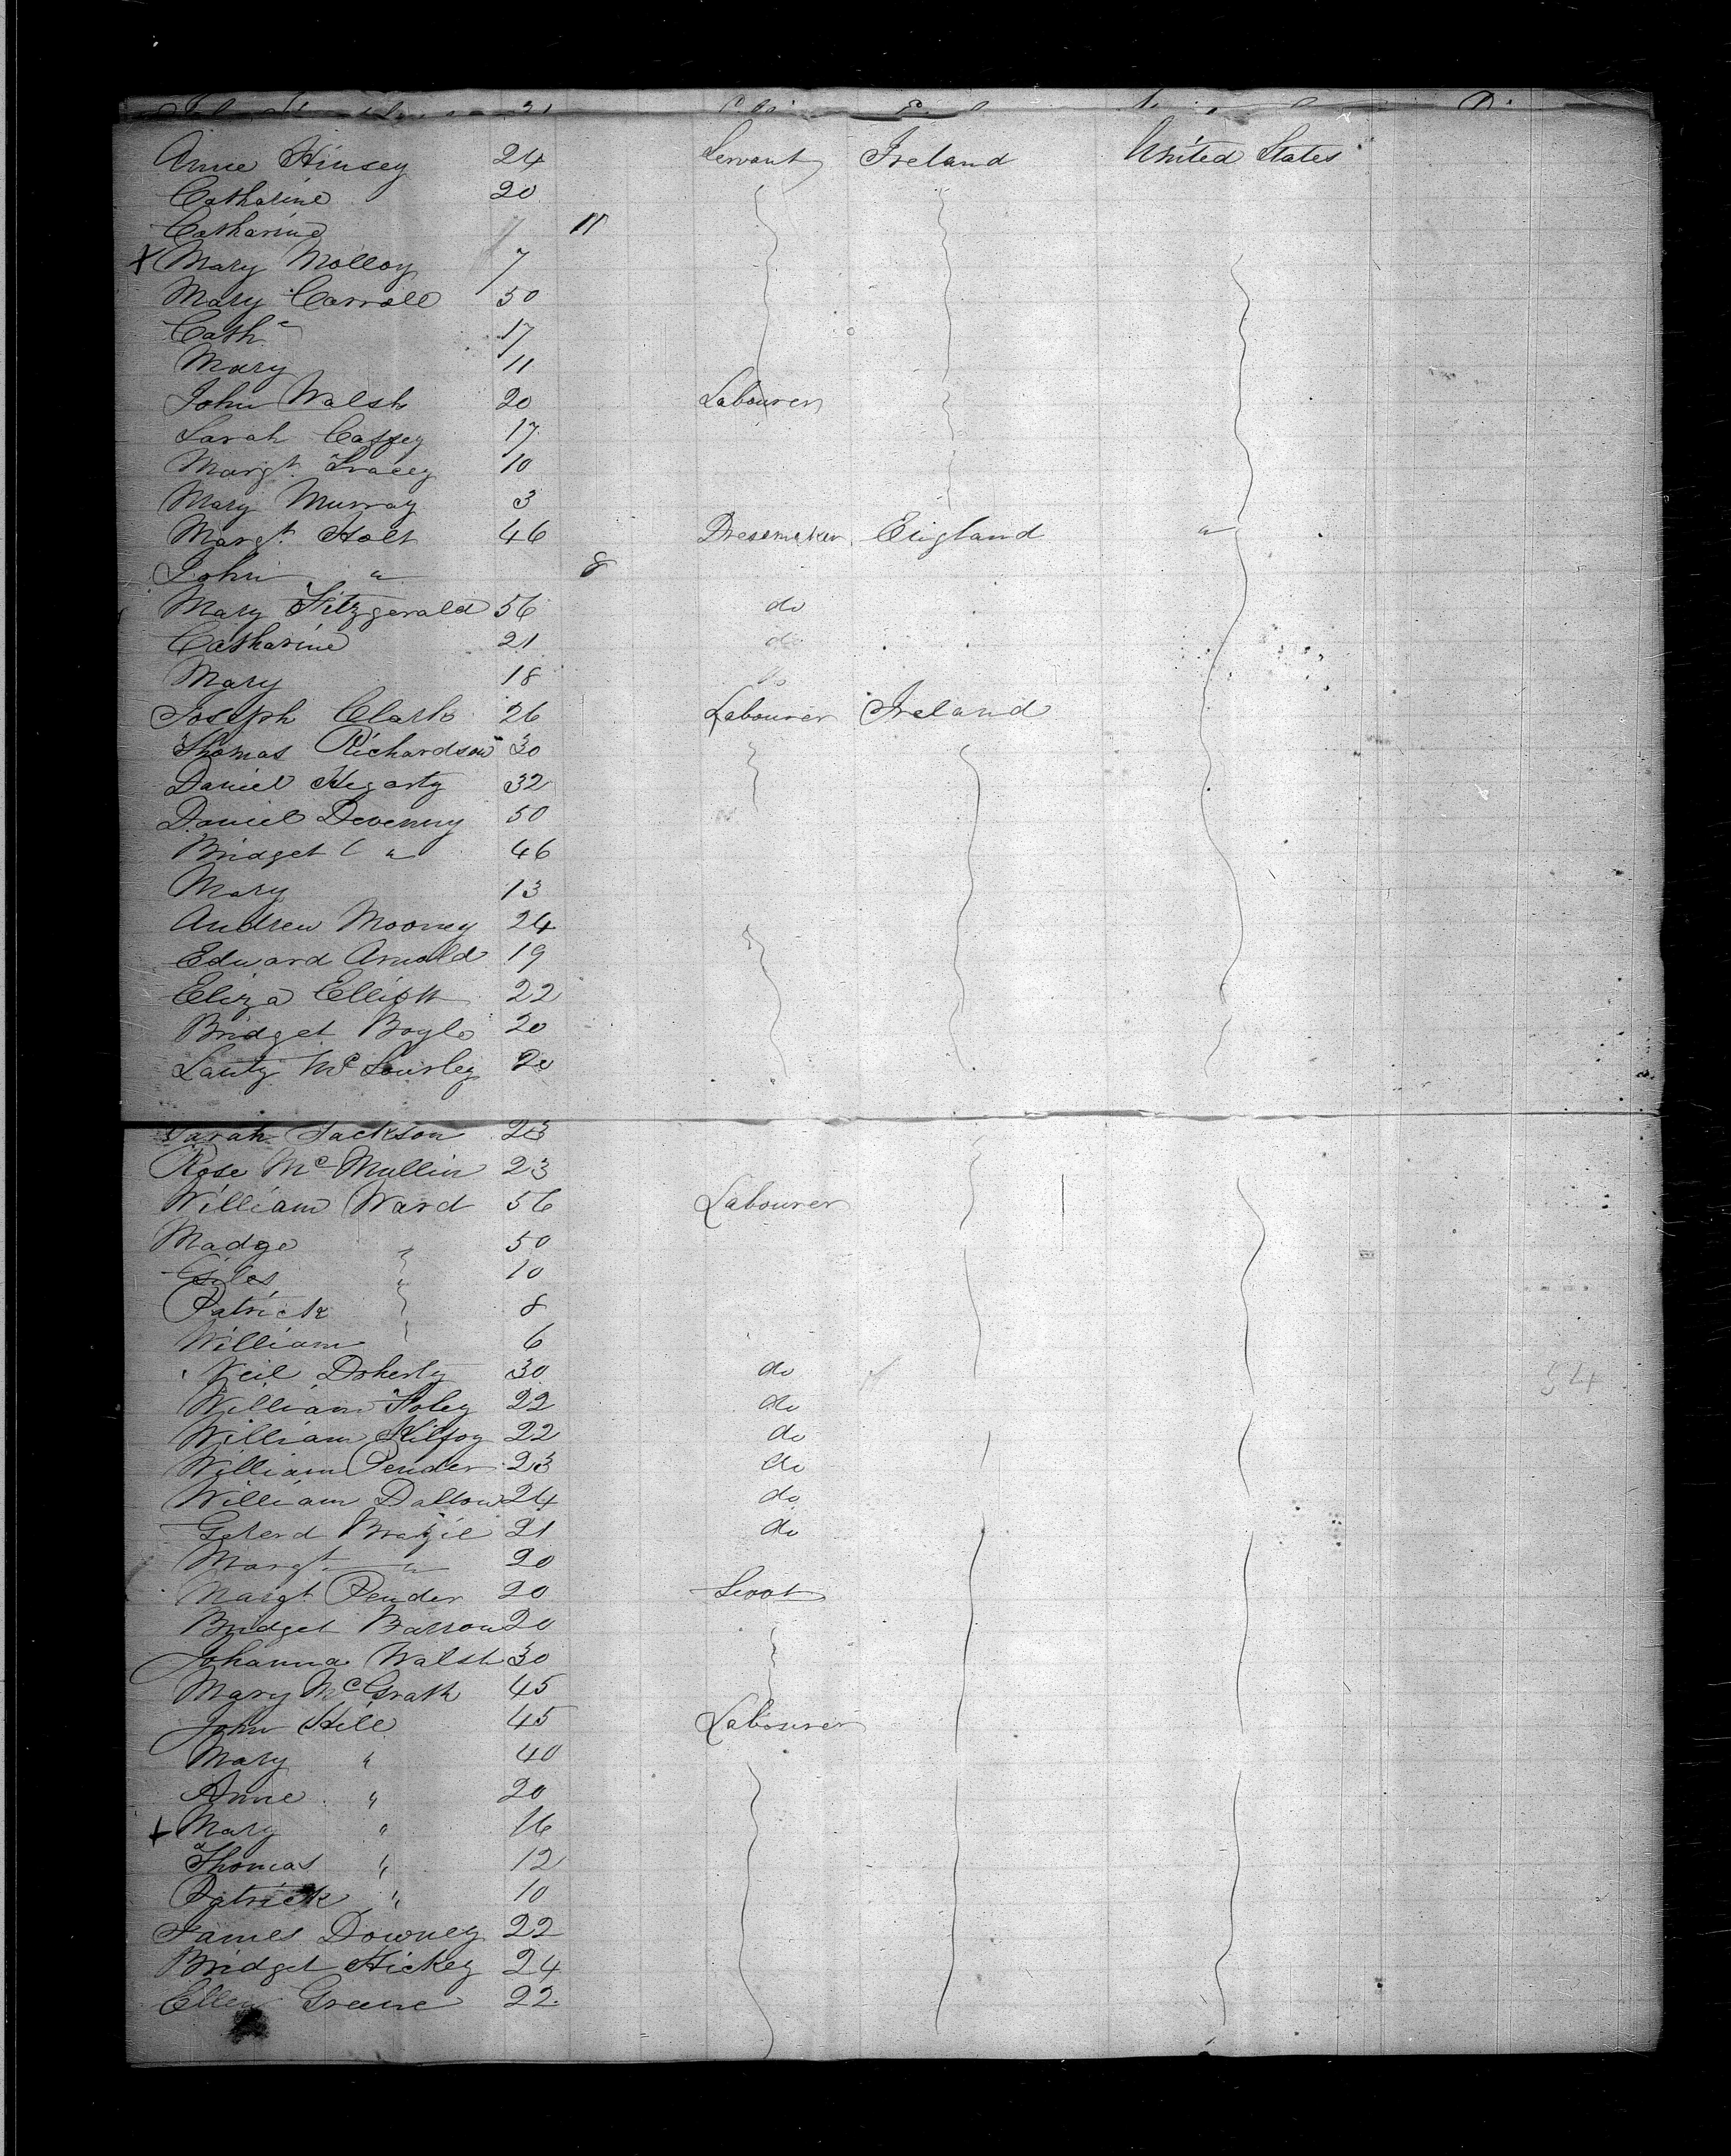 Anne Hinsey 24 Servant Ireland United States
Catharine 20
Catharine 11
X Mary Molloy 7
Mary Carroll 50
Cath^e 17
Mary 11
John Walsh 20 Labourer
Sarah Caffey 17
Margt. Tracey 10
Mary Murray 3
Margt. Holt 46 Dressmaker England "
John " 8
Mary Fitzgerald 56 do
Catharine 21 do
Mary 18 do
Joseph Clark 26 Labourer Ireland
Thomas Richardson 30
Daniel Hegarty 32
Daniel Devenny 50
Bridget " 46
Mary 13
Andrew Mooney 24
Edward Arnold 19
Eliza Elliott 22
Bridget Boyle 20
Lanty Mc Sourley 20
Sarah Jackson 23
Rose Mc Mullin 23
William Ward 56 Labourer
Madge 50
Giles 10
Patrick 8
William 6
Neil Doherty 30 do
William Foley 22 do
William Kilfoy 22 do
William Pender 23 do
William Dalton 24 do
Gerard Brazil 21 do
Margt. " 20
Margt Pender 20 Servt
Bridget Barron 20
Johanna Walsh 30
Mary McGrath 45
John Hill 45 Labourer
Mary " 40
Anne " 20
X Mary " 16
Thomas " 12
Patrick " 10
James Downey 22
Bridget Hickey 24
Ellen Greene 22